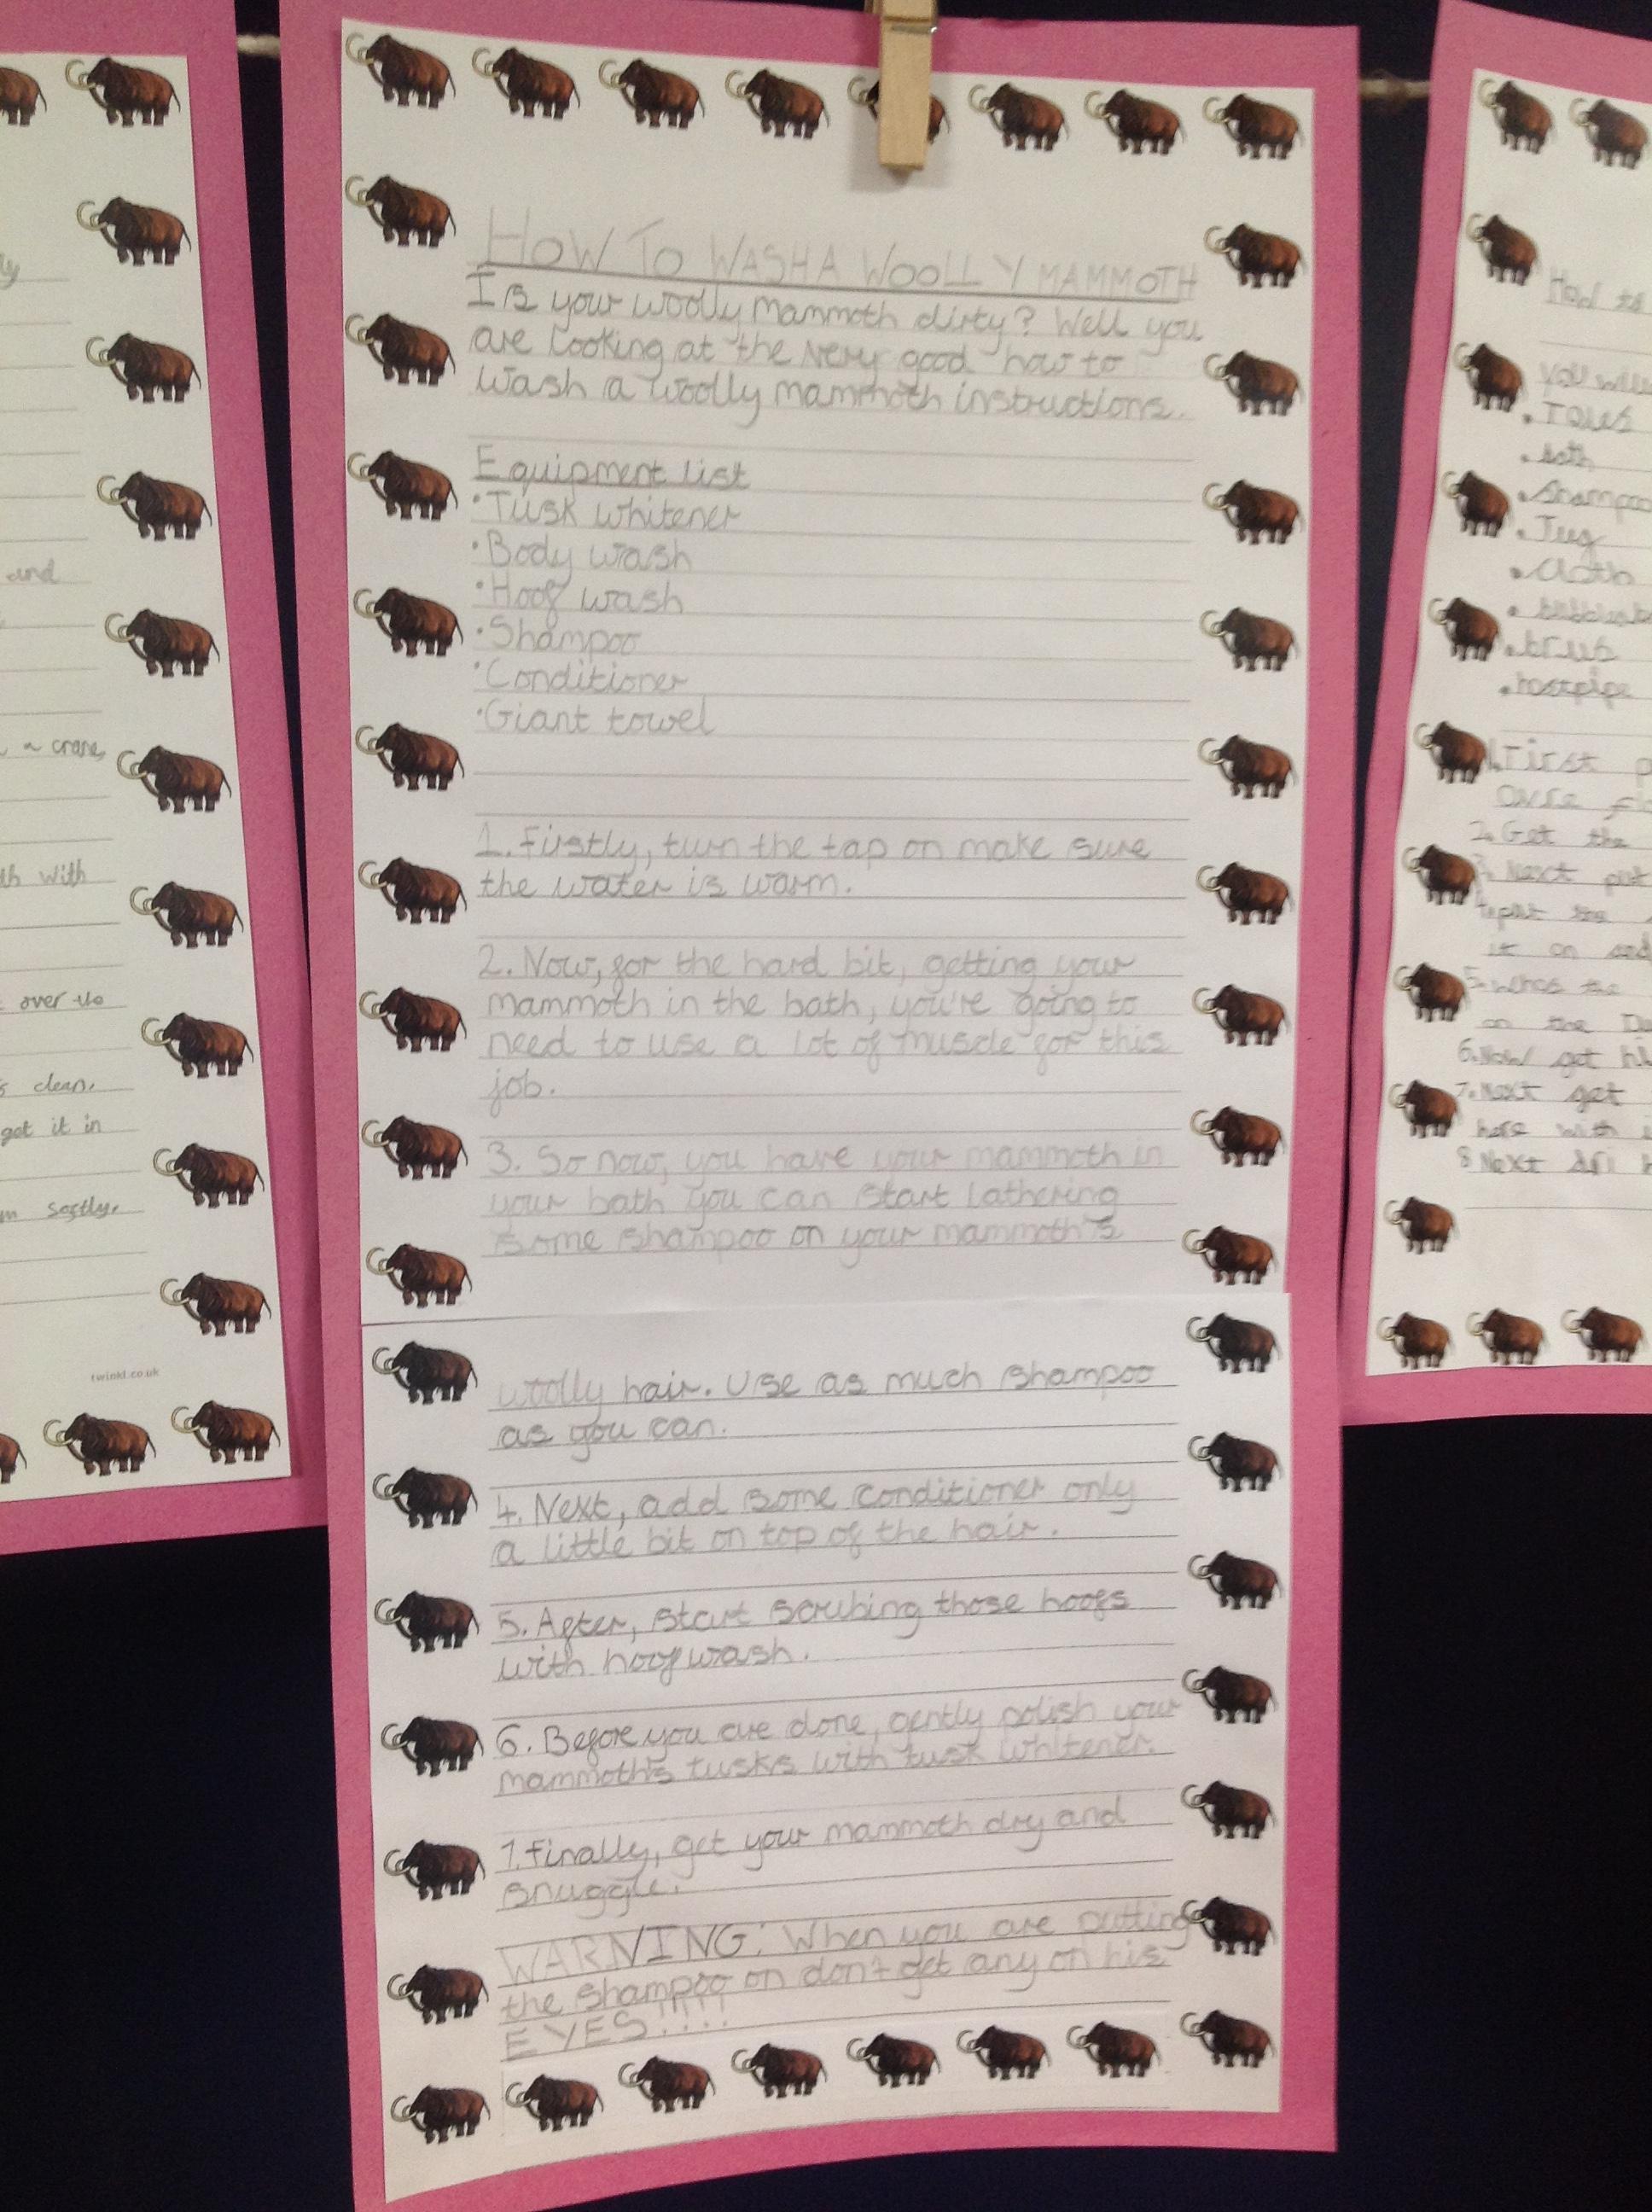 HOW TO WASH A WOOLLY MAMMOTH
Is your woolly mammoth dirty? Well you
are looking at the very good how to
wash a woolly mammoth instructions.
Equipment list
•Tusk whitener
•Body wash
•Hoof wash
•Shampoo
•Conditioner
•Giant towel
1. Firstly, turn the tap on make sure
the water is warm.
2. Now, for the hard bit, getting your
mammoth in the bath, you're going to
need to use a lot of muscle for this
job.
3. So now, you have your mammoth in
your bath you can start lathering
some shampoo on your mammoth's
woolly hair. Use as much shampoo
as you can.
4. Next, add some conditioner only
a little bit on top of the hair.
5. After, start scrubing those hoofs
with hoof wash.
6. Before you are done, gently polish your
mammoth's tusks with tusk whitener.
7. Finally, get your mammoth dry and
snuggle.
WARNING: When you are putting
the shampoo on don't get any on his
EYES!!!!!
and
a crane,
with
over
clean.
get it in
softly.
twinkl.co.uk
you will
• Jug
• hosepipe
1. First
2. Get the
Next put
put the
it on and
on the
6. Now get
7. Next get
with
8 Next